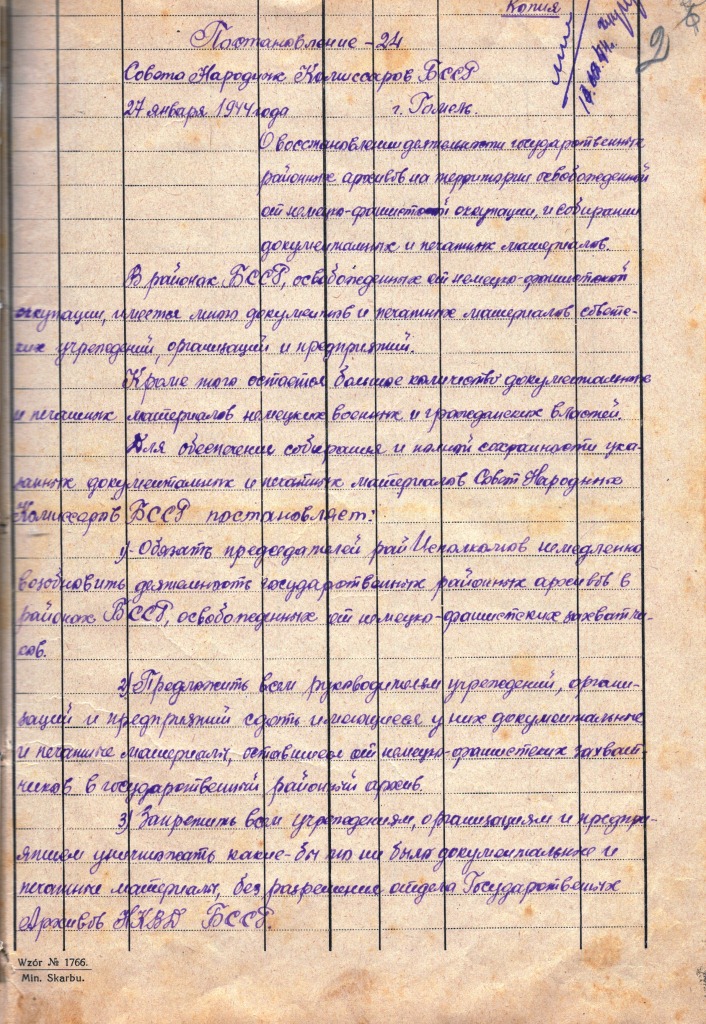 Копия
2
Постановление - 24
Совета Народных Комиссаров БССР
27 января 1944 года г. Гомель.
О восстановлении деятельности государственных
районных архивов на территории освобожденной
от немецко-фашистской оккупации, и собирании
документальных и печатных материалов.
В районах БССР, освобожденных от немецко-фашистской
оккупации, имеется много документов и печатных материалов советс-
ких учреждений, организаций и предприятий.
Кроме того остается большое количество документальных
и печатных материалов немецких военных и гражданских властей.
Для обеспечения собирания и полной сохранности ука-
занных документальных и печатных материалов Совет Народных
Комиссаров БССР постановляет:
1) Обязать председателей райИсполкомов немедленно
возобновить деятельность государственных районных архивов в
районах БССР, освобожденных от немецко-фашистских захватчи-
ков.
2) Предложить всем руководителям учреждений, органи-
заций и предприятий сдать имеющиеся у них документальные
и печатные материалы, оставшиеся от немецко-фашистских захват-
чиков в государственный районный архив.
3) Запретить всем учреждениям, организациям и предпри-
ятием уничтожать какие-бы то ни было документальные и
печатные материалы, без разрешения отдела Государственных
Архивов НКВД БССР.
Wzór № 1766.
Min. Skarbu.